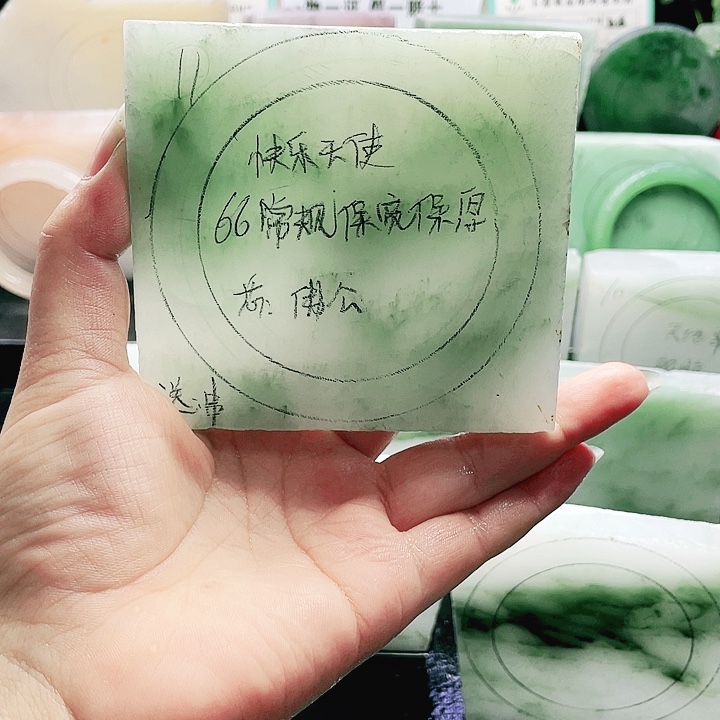 11
快乐天使
66常规保宽保厚
芯: 佛公
送串